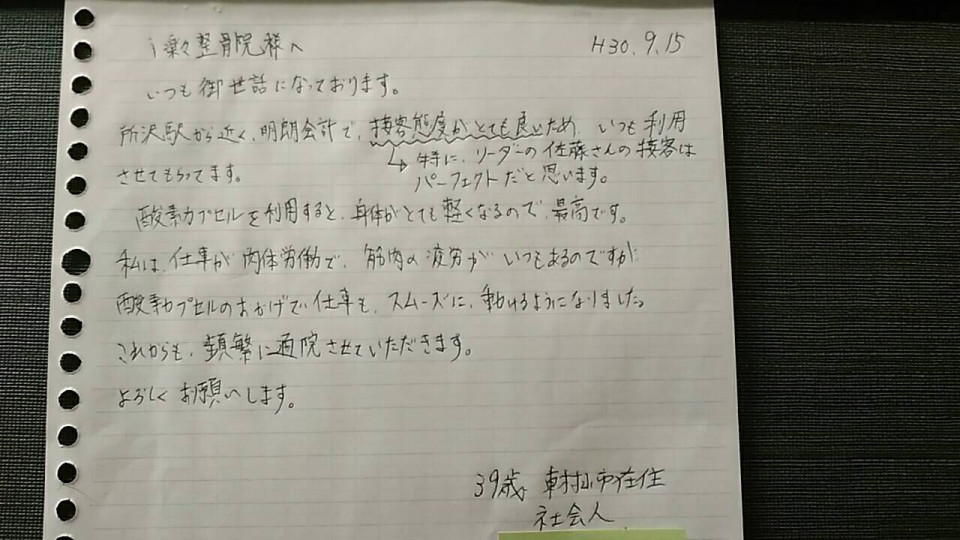 i楽々整骨院様へ
H30.9.15
いつも御世話になっております。
所沢駅から近く、明朗会計で、接客態度がとても良いため、いつも利用
↳特に、リーダーの佐藤さんの接客は
させてもらってます。
パーフェクトだと思います。
酸素カプセルを利用すると、身体がとても軽くなるので、最高です。
私は、仕事が肉体労働で、筋肉の疲労がいつもあるのですが
酸素カプセルのおかげで仕事も、スムーズに、動けるようになりました。
これからも、頻繁に通院させていただきます。
よろしくお願いします。
39歳 東村山市在住
社会人